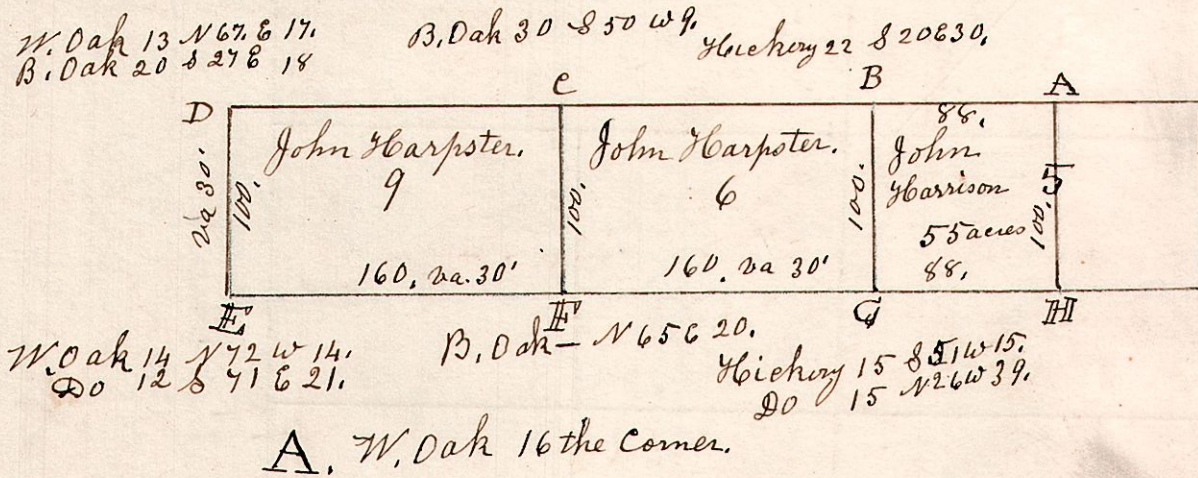 W. Oak 13 N 67. E 17.
B. Oak 20 S 27 E 18
B. Oak 30 S 50 W 9.
Hickory 22 S 20 E 30.
D
C
B
A
Va 30'
100.
John Harpster.
9
160. va. 30'
100.
John Harpster.
6
160. va 30'
100.
88.
John
Harrison
55 acres
88.
100.
5
E
F
G
H
W. Oak 14 N 72 W 14.
Do 12 S 71 E 21.
B. Oak — N 65 E 20.
Hickory 15 S 51 W 15.
Do 15 N 26 W 39.
A. W. Oak 16 the Corner.